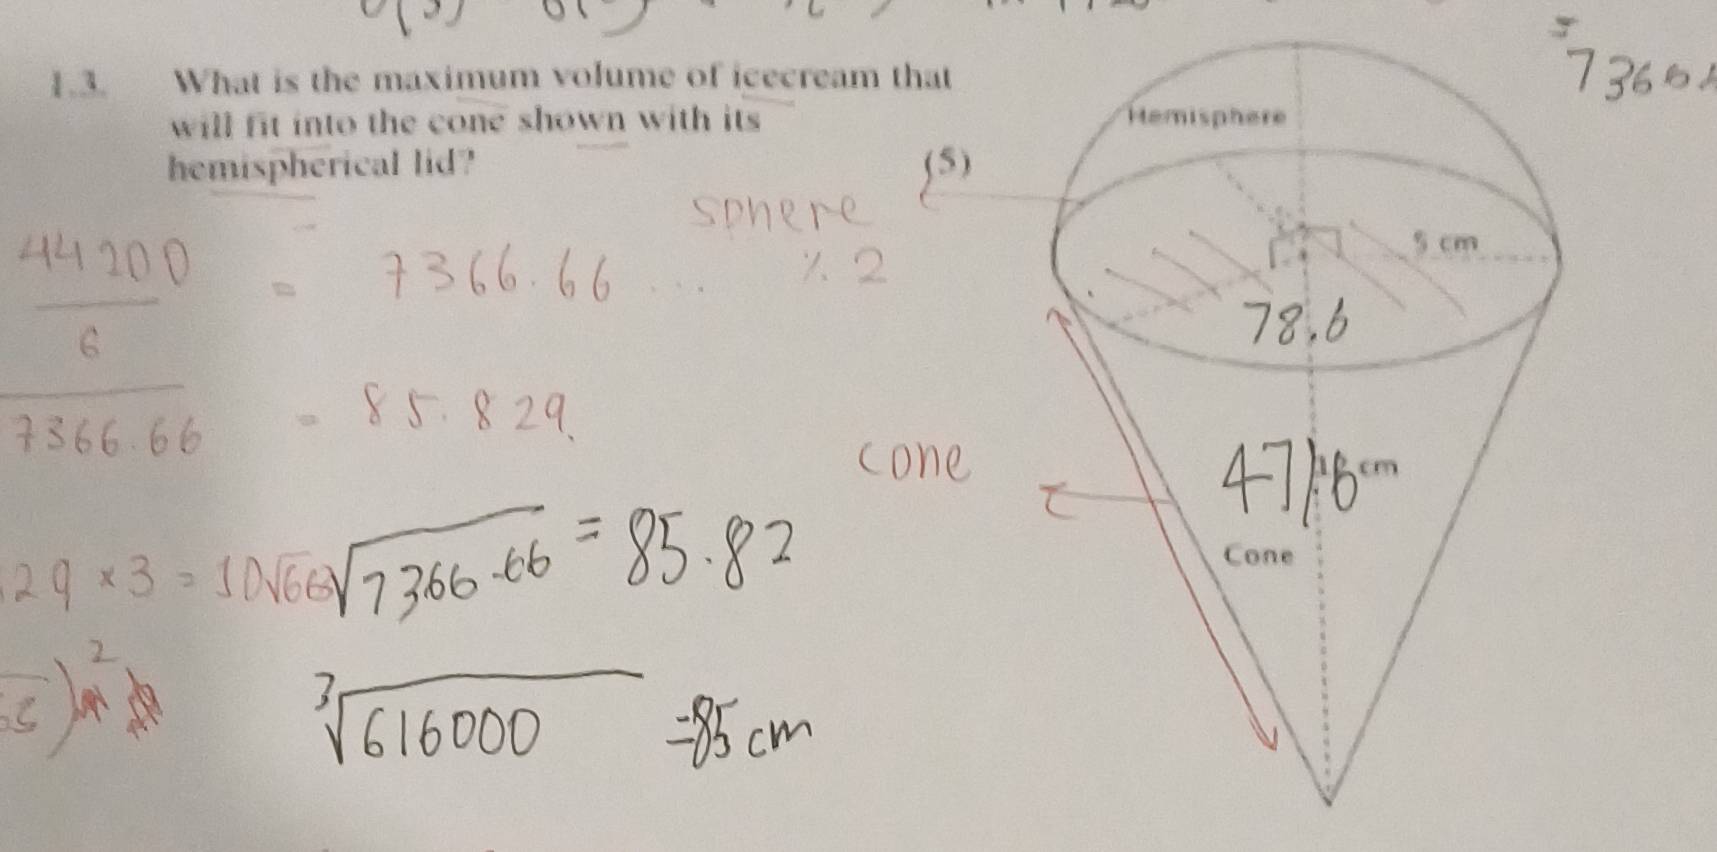 1.3. What is the maximum volume of icecream that
will fit into the cone shown with its
hemispherical lid?
(5)
Hemisphere
5 cm
78.6
cm
Cone
sphere
% 2
cone
44200
6
= 7366.66 ...
7366.66
= 85.829.
29 × 3 =
√7366.66 = 85.82
2
³√616000 = 85 cm
=